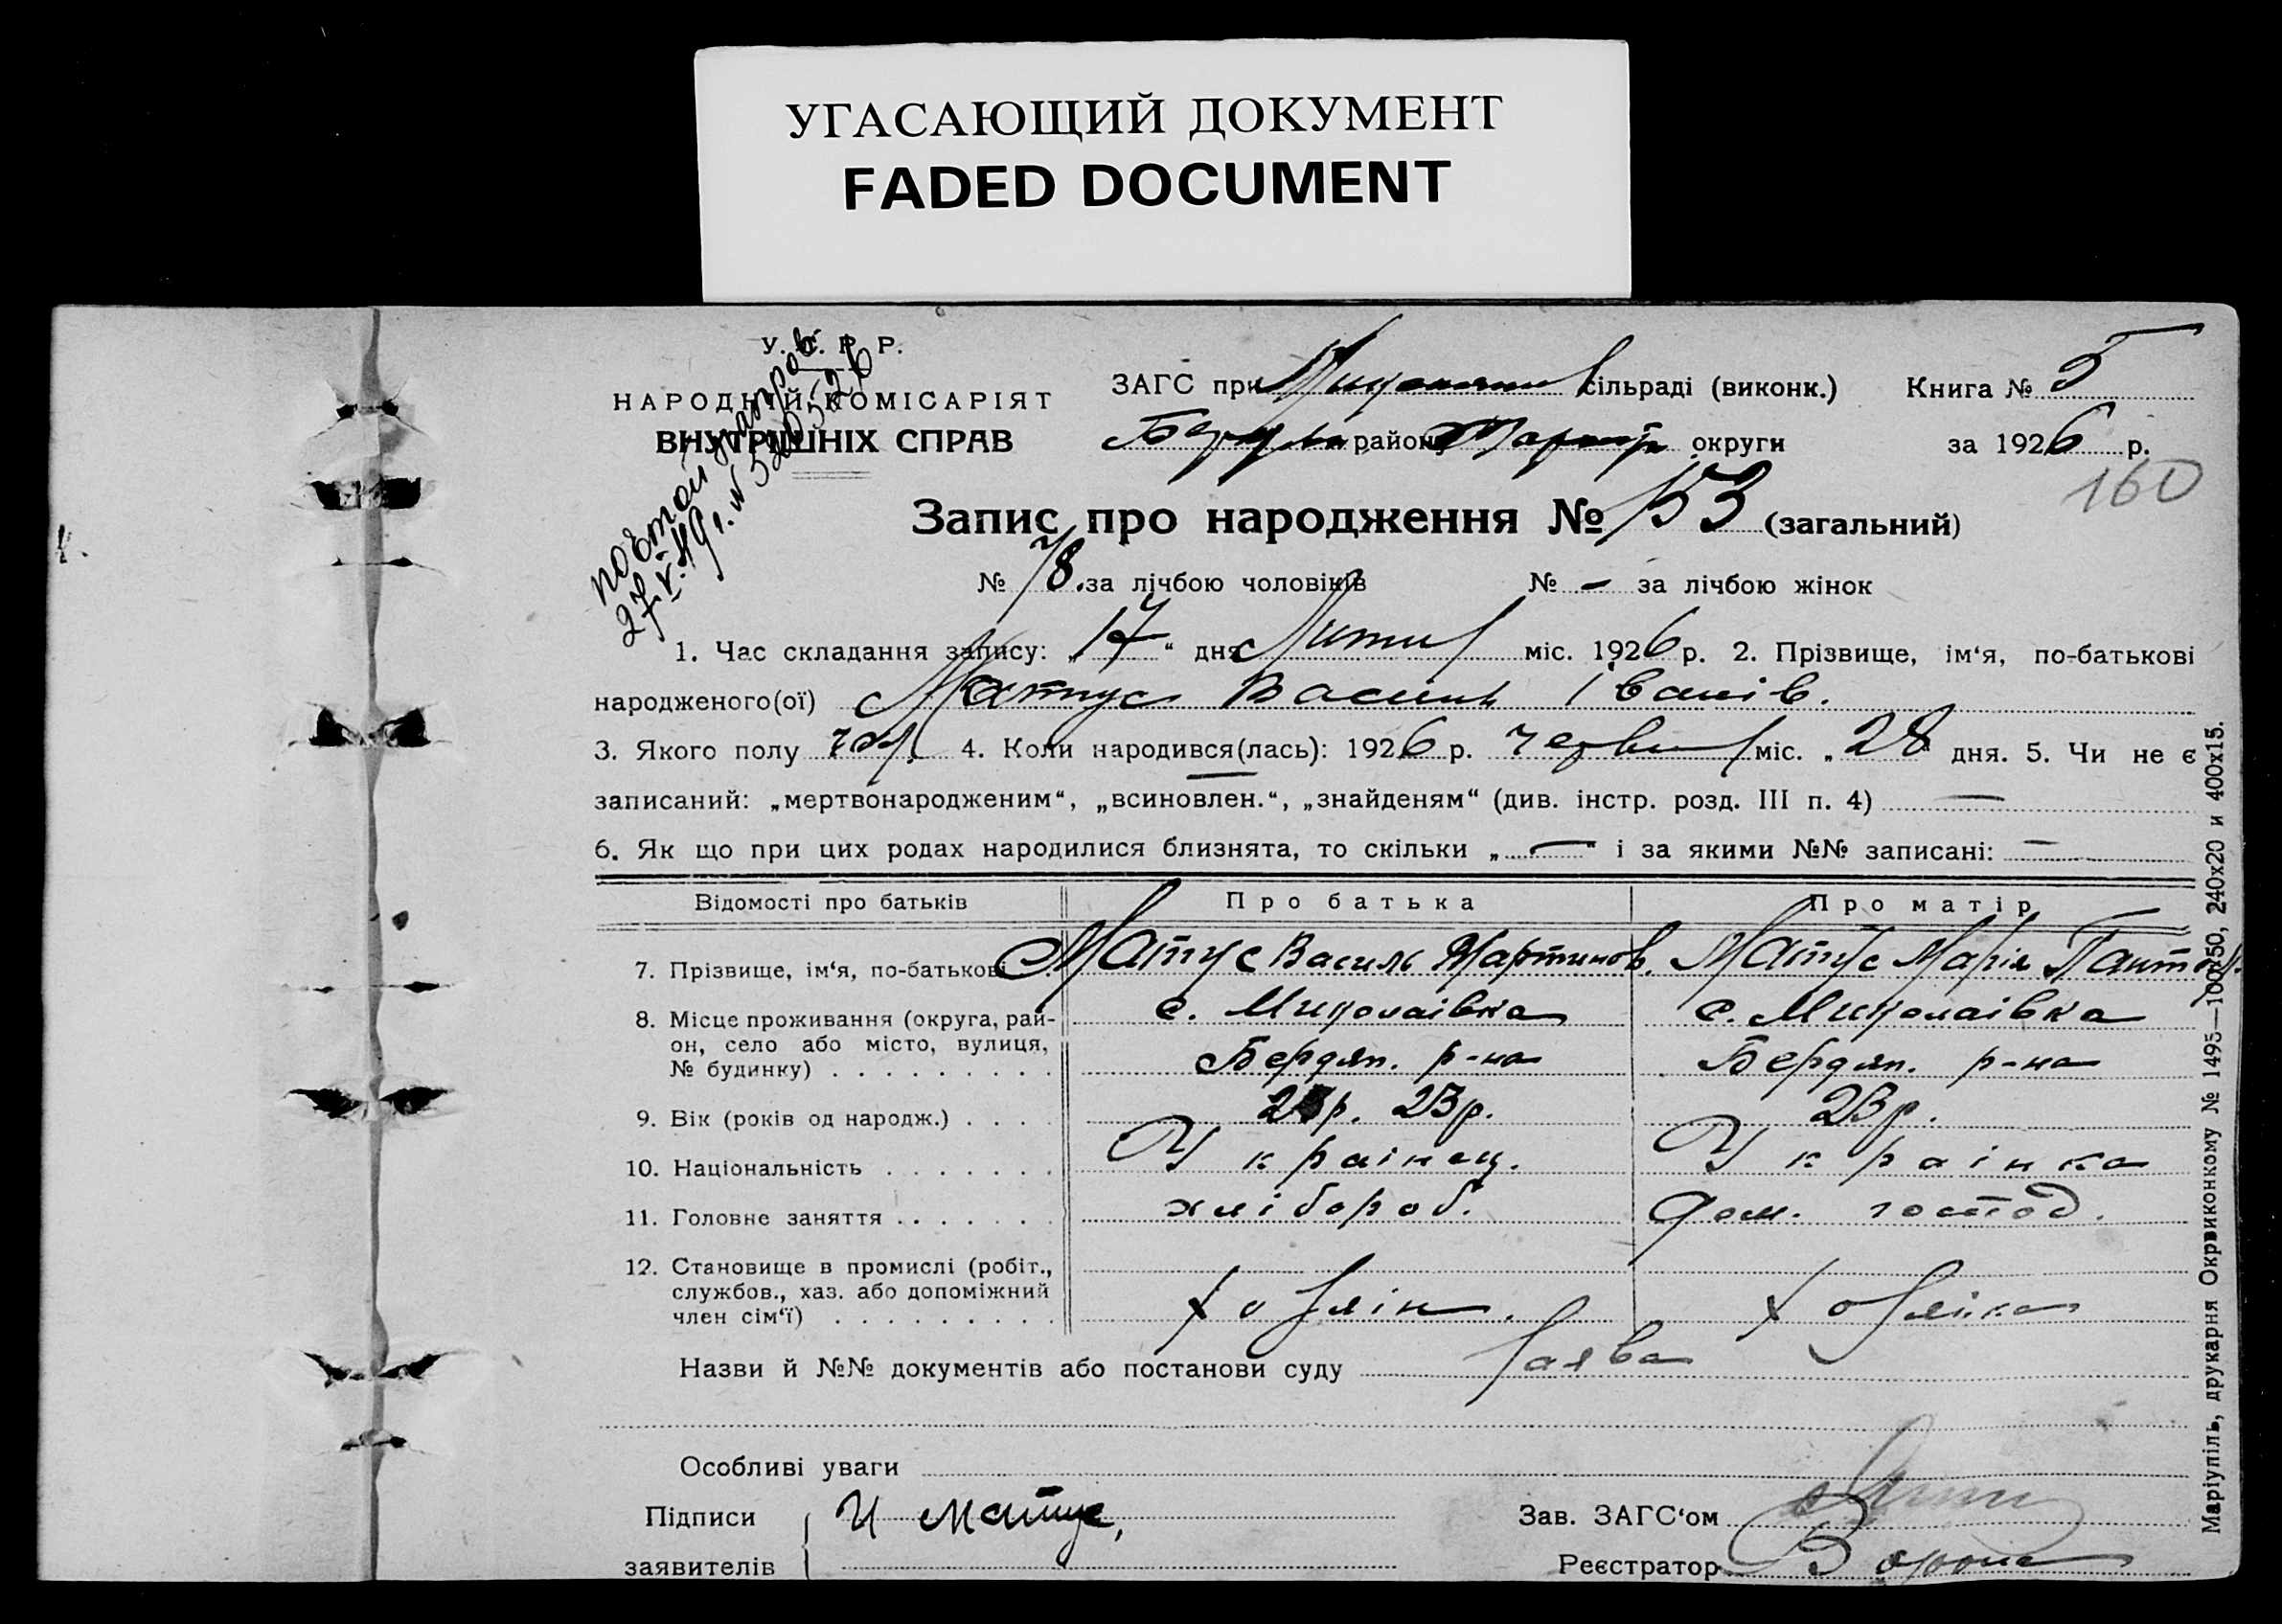 УГАСАЮЩИЙ ДОКУМЕНТ
FADED DOCUMENT
У. С. Р. Р.
НАРОДНІЙ КОМІСАРІЯТ
ВНУТРІШНІХ СПРАВ
ЗАГС при сільраді (виконк.) Книга № 5
району округи за 1926 р.
160
Запис про народження № 153 (загальний)
№ 78. за лічбою чоловіків № – за лічбою жінок
1. Час складання запису: „17“ дня міс. 1926 р. 2. Прізвище, ім‘я, по-батькові
народженого(ої) Матус Василь Іванів.
3. Якого полу чол. 4. Коли народився(лась): 1926 р. червня міс. „28“ дня. 5. Чи не є
записаний: „мертвонародженим“, „всиновлен.“, „знайденям“ (див. інстр. розд. III п. 4) —
6. Як що при цих родах народилися близнята, то скільки „—“ і за якими №№ записані: —
Відомості про батьків Про батька Про матір
7. Прізвище, ім‘я, по-батькові Матус Василь Мартинов. Матус Марія
8. Місце проживання (округа, рай- с. Миколаівка с. Миколаівка
он, село або місто, вулиця, Бердян. р-на Бердян. р-на
№ будинку)
9. Вік (років од народж.) 23р. 23р.
10. Національність Украінец. Украінка
11. Головне заняття хлібороб. дом. господ.
12. Становище в промислі (робіт.,
службов., хаз. або допоміжний
член сім‘ї) Хозяін. Хозяйка
Назви й №№ документів або постанови суду Заява
Особливі уваги
Підписи И Матус, Зав. ЗАГС‘ом
заявителів Реєстратор Ворона
Маріупіль, друкарня Окрвиконкому № 1495—100х50, 240х20 и 400х15.